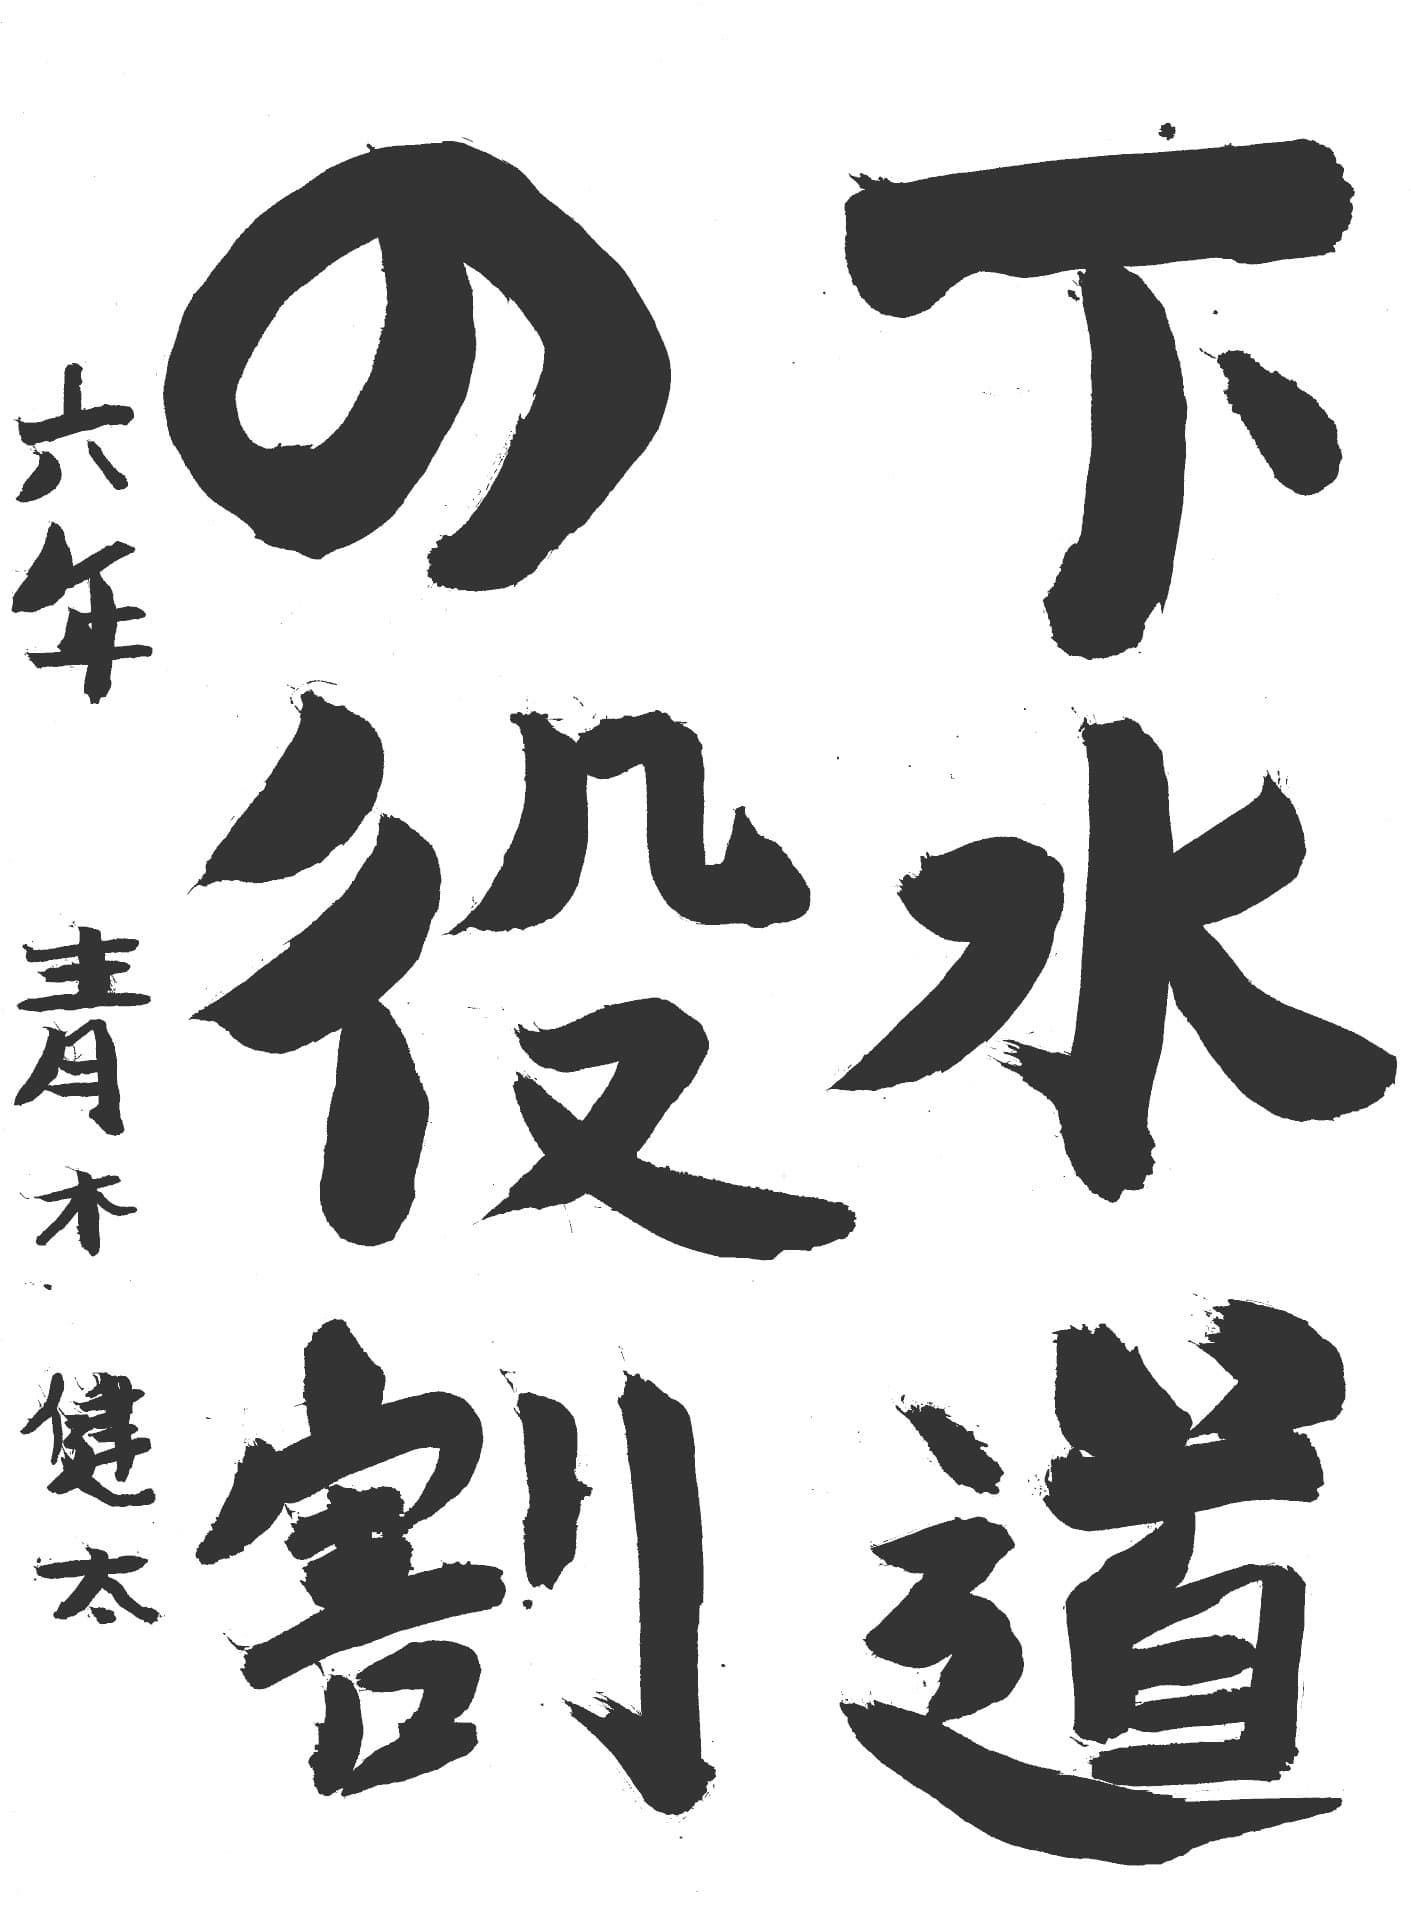 下水道
の役割
六年 青木 健太